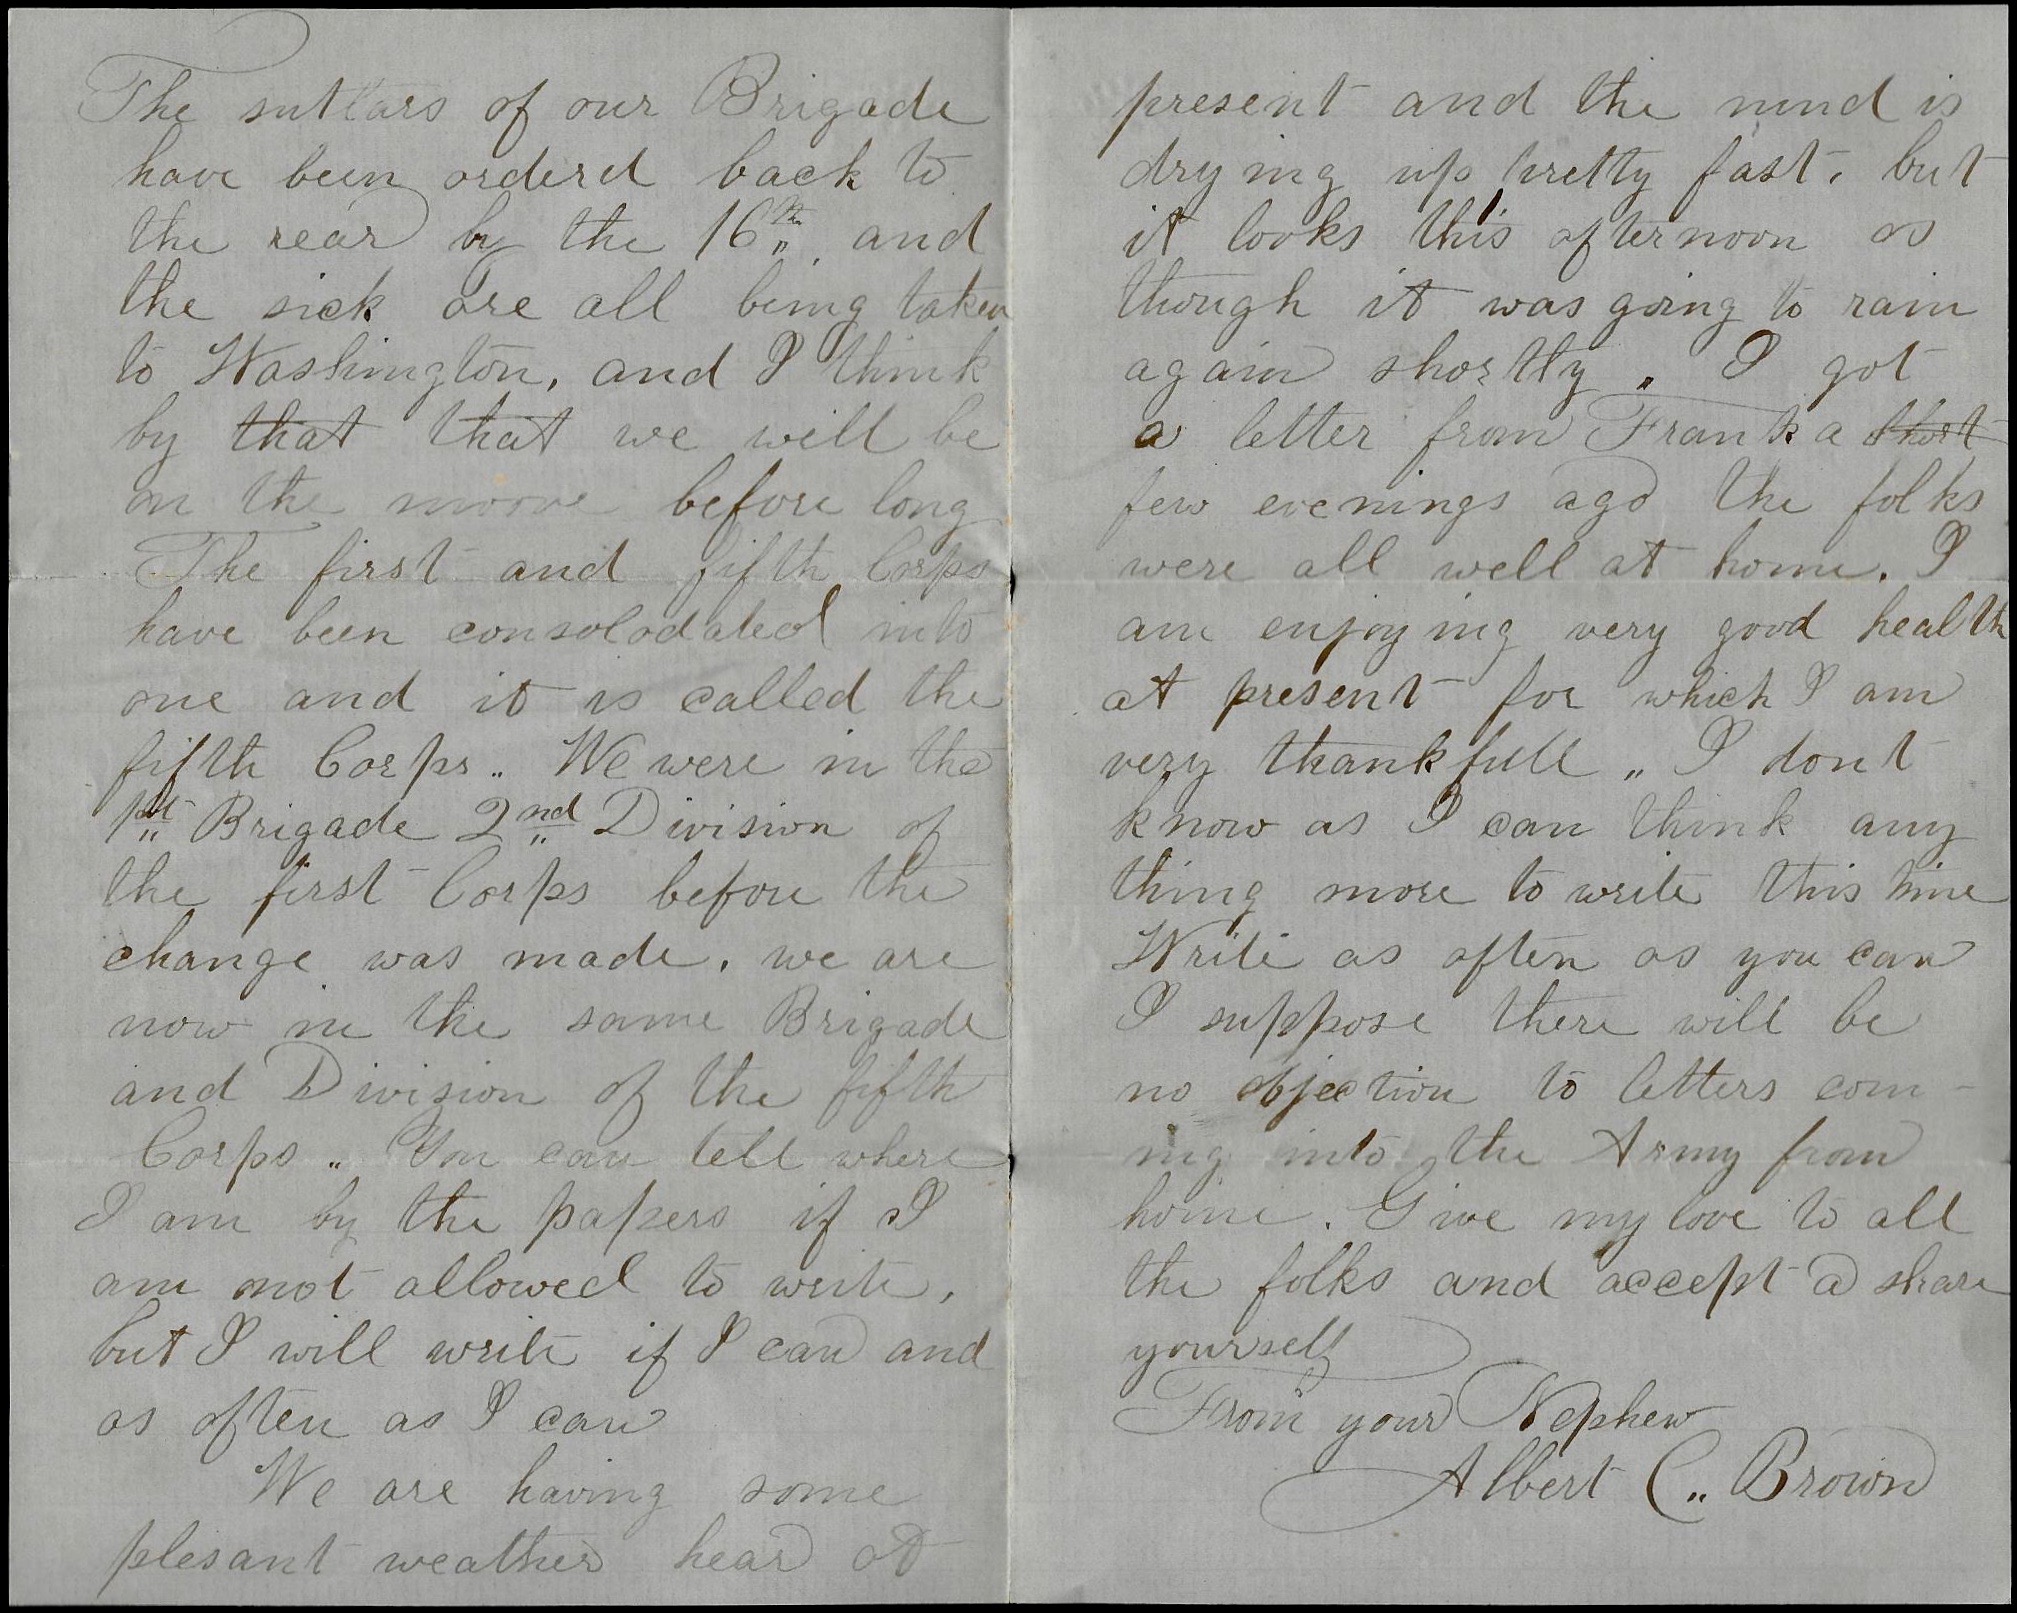 The sutlars of our Brigade
have been orderd back to
the rear by the 16th and
the sick are all being taken
to Washington, and I think
by that that we will be
on the moove before long
The first and fifth Corps
have been consolodated into
one and it is called the
fifth Corps.. We were in the
1st Brigade 2nd Division of
the first Corps before the
change was made. we are
now in the same Brigade
and Division of the fifth
Corps .. You can tell where
I am by the papers if I
am not allowed to write.
but I will write if I can and
as often as I can
We are having some
plesant weather hear at
present and the mud is
drying up pretty fast. but
it looks this afternoon as
though it was going to rain
again shortly .. I got
a letter from Frank a short
few evenings ago the folks
were all well at home. I
am enjoying very good health
at present for which I am
very thankfull .. I dont
know as I can think any
thing more to write this time
Write as often as you can
I suppose there will be
no objection to letters com-
ing into the Army from
home. Give my love to all
the folks and accept a share
yourself
From your Nephew
Albert C.. Brown